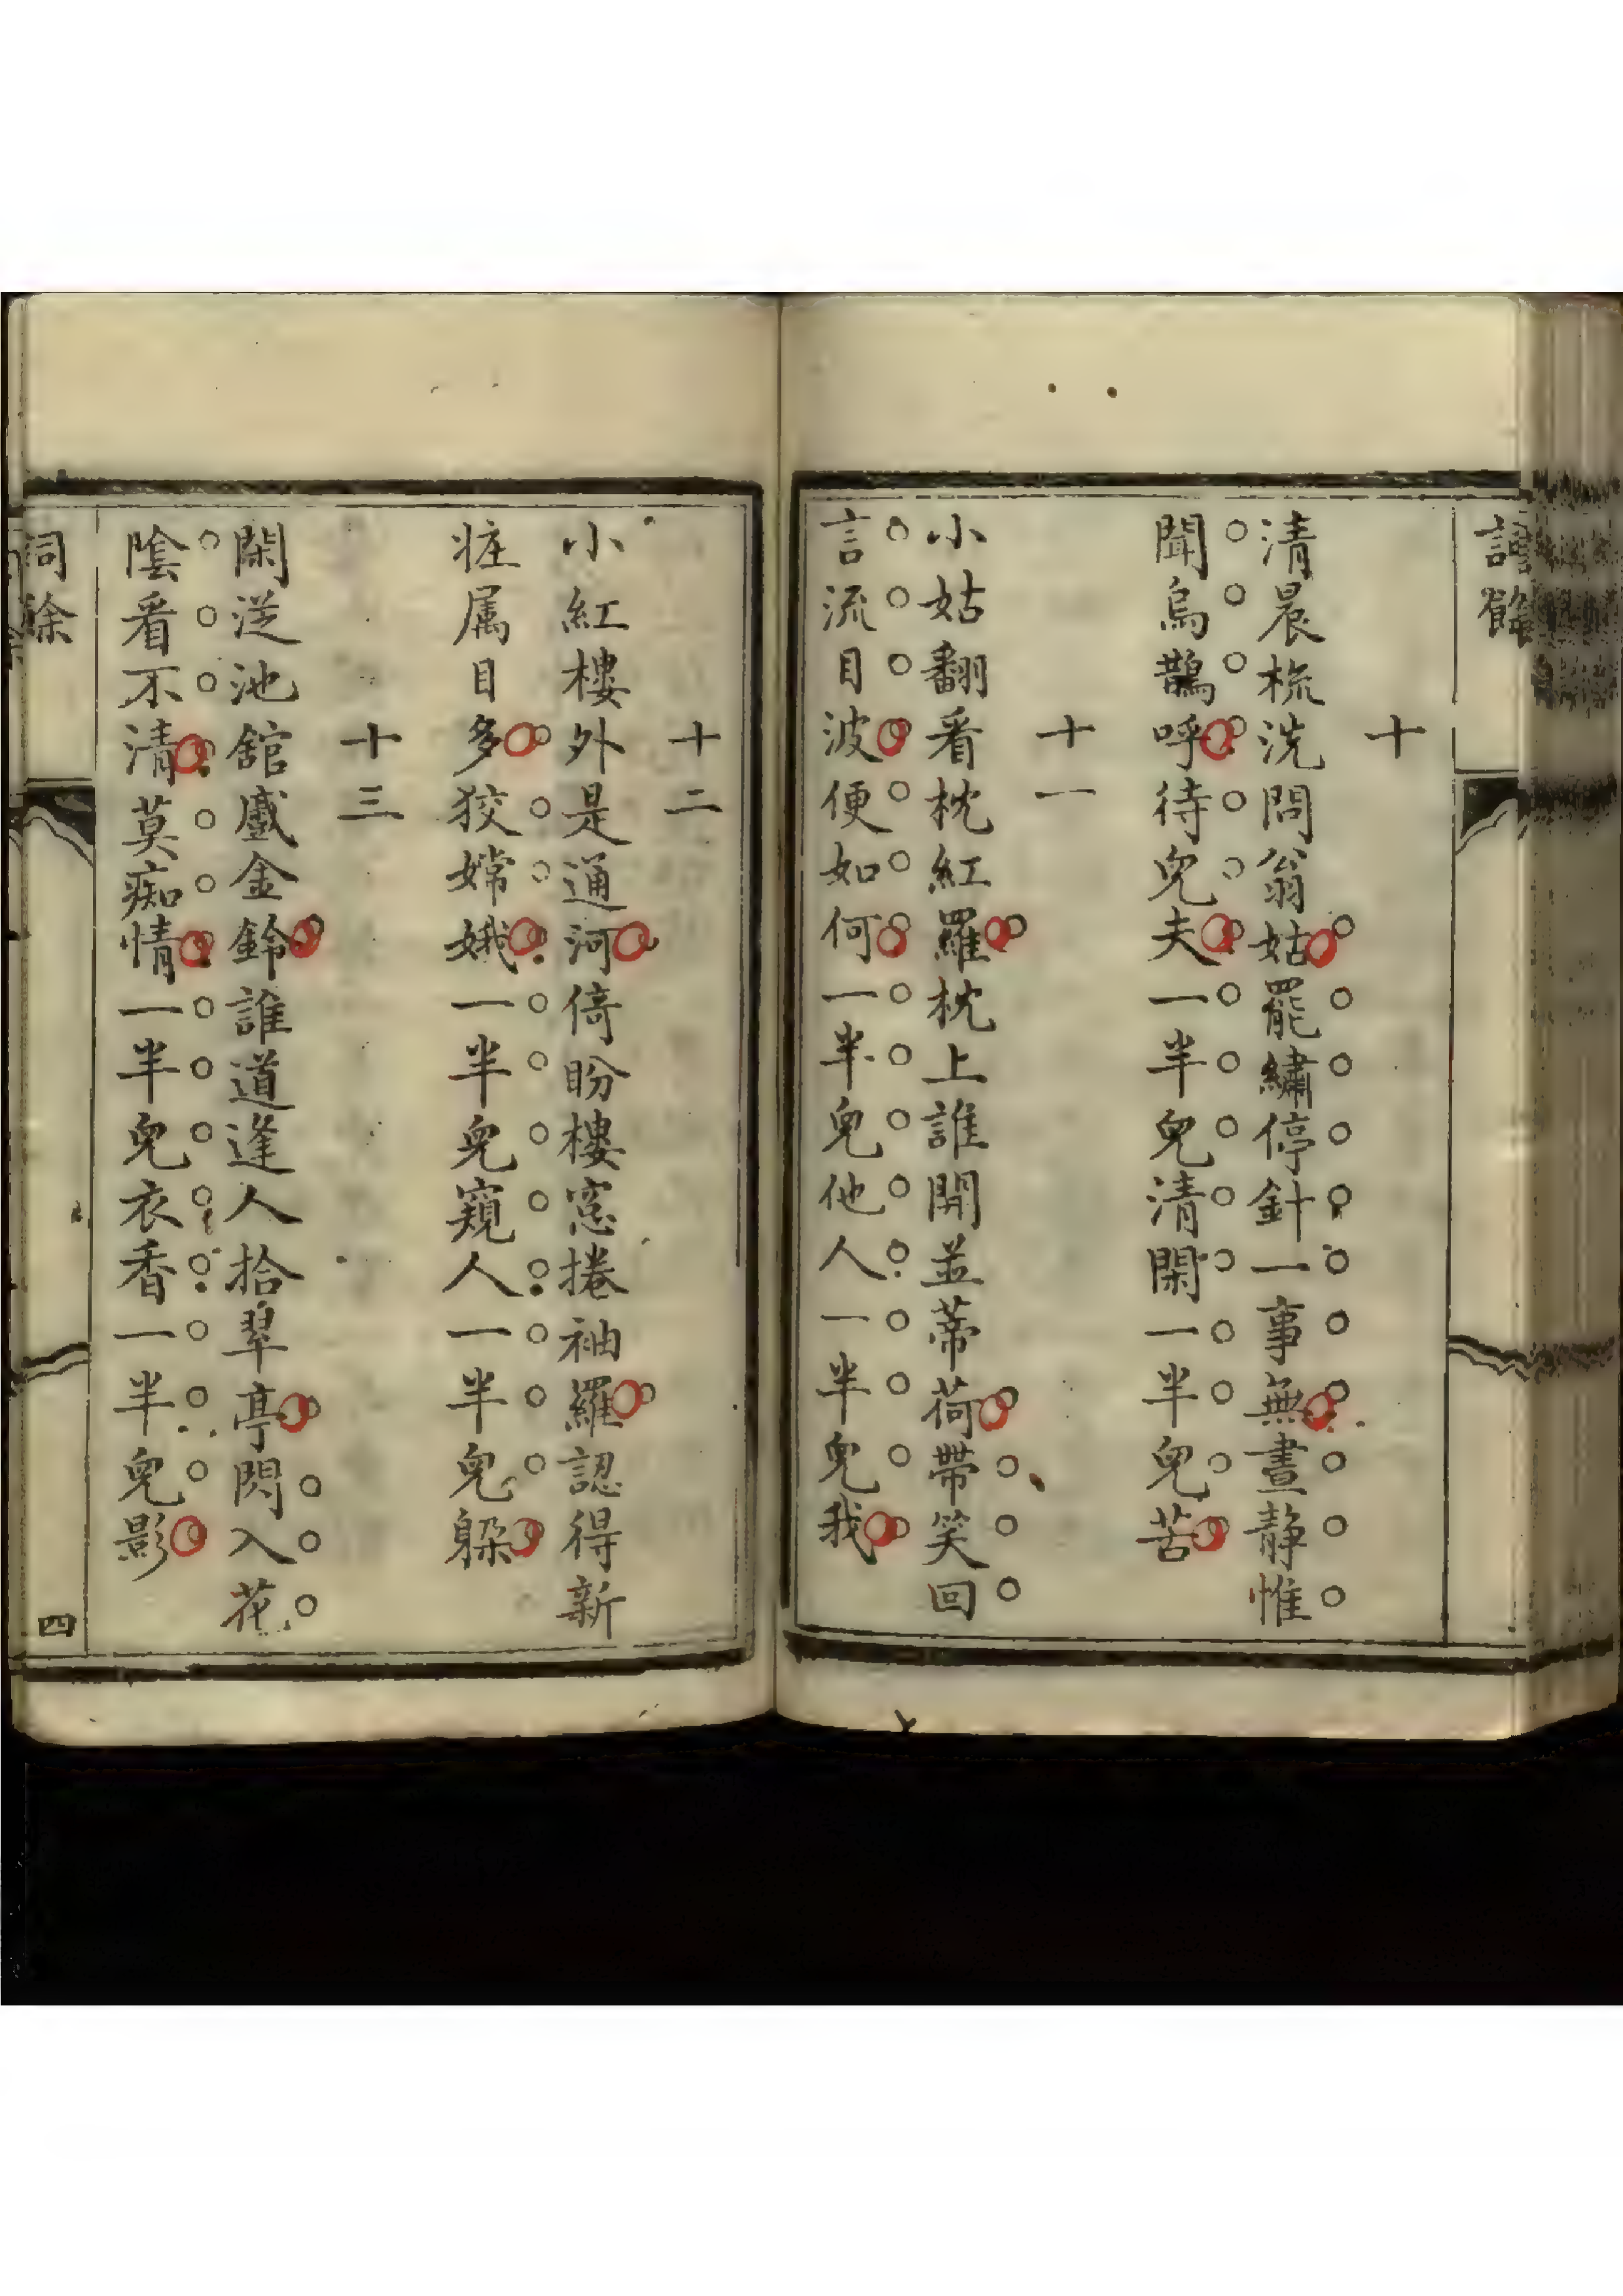 詞餘
十
清晨梳洗問翁姑罷繡停針一事無晝静惟
聞烏鵲呼待兒夫一半兒清閑一半兒苦
十一
小姑翻看枕紅羅枕上誰開並蒂荷帶笑回
言流目波便如何一半兒他人一半兒我
十二
小紅樓外是通河倚盼樓窓捲袖羅認得新
粧属目多狡嫦娥一半兒窺人一半兒躲
十三
閑送池舘戲金鈴誰道逢人拾翠亭閃入花
陰看不清莫痴情一半兒衣香一半兒影
詞餘
四